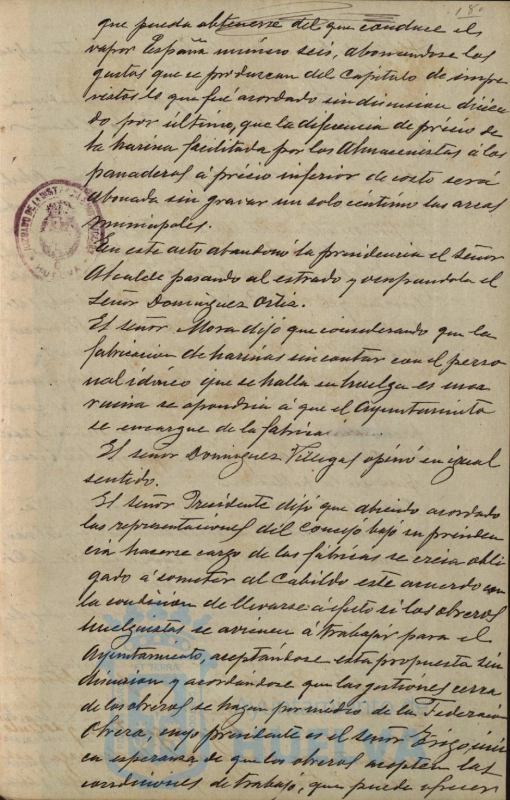 180
que pueda obtenerse del que conduce el
vapor España número seis, abonandose los
gastos que se produzcan del Capitulo de impre
vistos lo que fué acordado sin discusion dicién
do por último, que la diferencia de precio de
la harina facilitada por los Almacenistas á los
panaderos á precio inferior de costo será
abonada sin gravar un solo céntimo las arcas
municipales.
En este acto abandonó la presidencia el señor
Alcalde pasando al estrado y ocupandola el
Señor Dominguez Ortiz.
El señor Mora dijó que considerando que la
fabricacion de harinas sin contar con el perso
nal idóneo que se halla en huelga es una
ruina se opondria á que el Ayuntamiento
se encargue de la fábrica
El señor Dominguez Villegas opinó en igual
sentido.
El señor Presidente dijó que abiendo acordado
las representaciones del Concejo bajo su presiden
cia hacerse cargo de las fábricas se creia obli
gado á someter al Cabildo este acuerdo con
la condicion de llevarse á efecto si los obreros
huelguistas se avienen á trabajar para el
Ayuntamiento, aceptándose esta propuesta sin
discusion y acordandose que las gestiones cerca
de los obreros se hagan por medio de la Federacion
Obrera, cuyo presidente es el señor
ca esperanza de que los obreros acepten las
condiciones de trabajo, que puede ofrecer
HUELVA